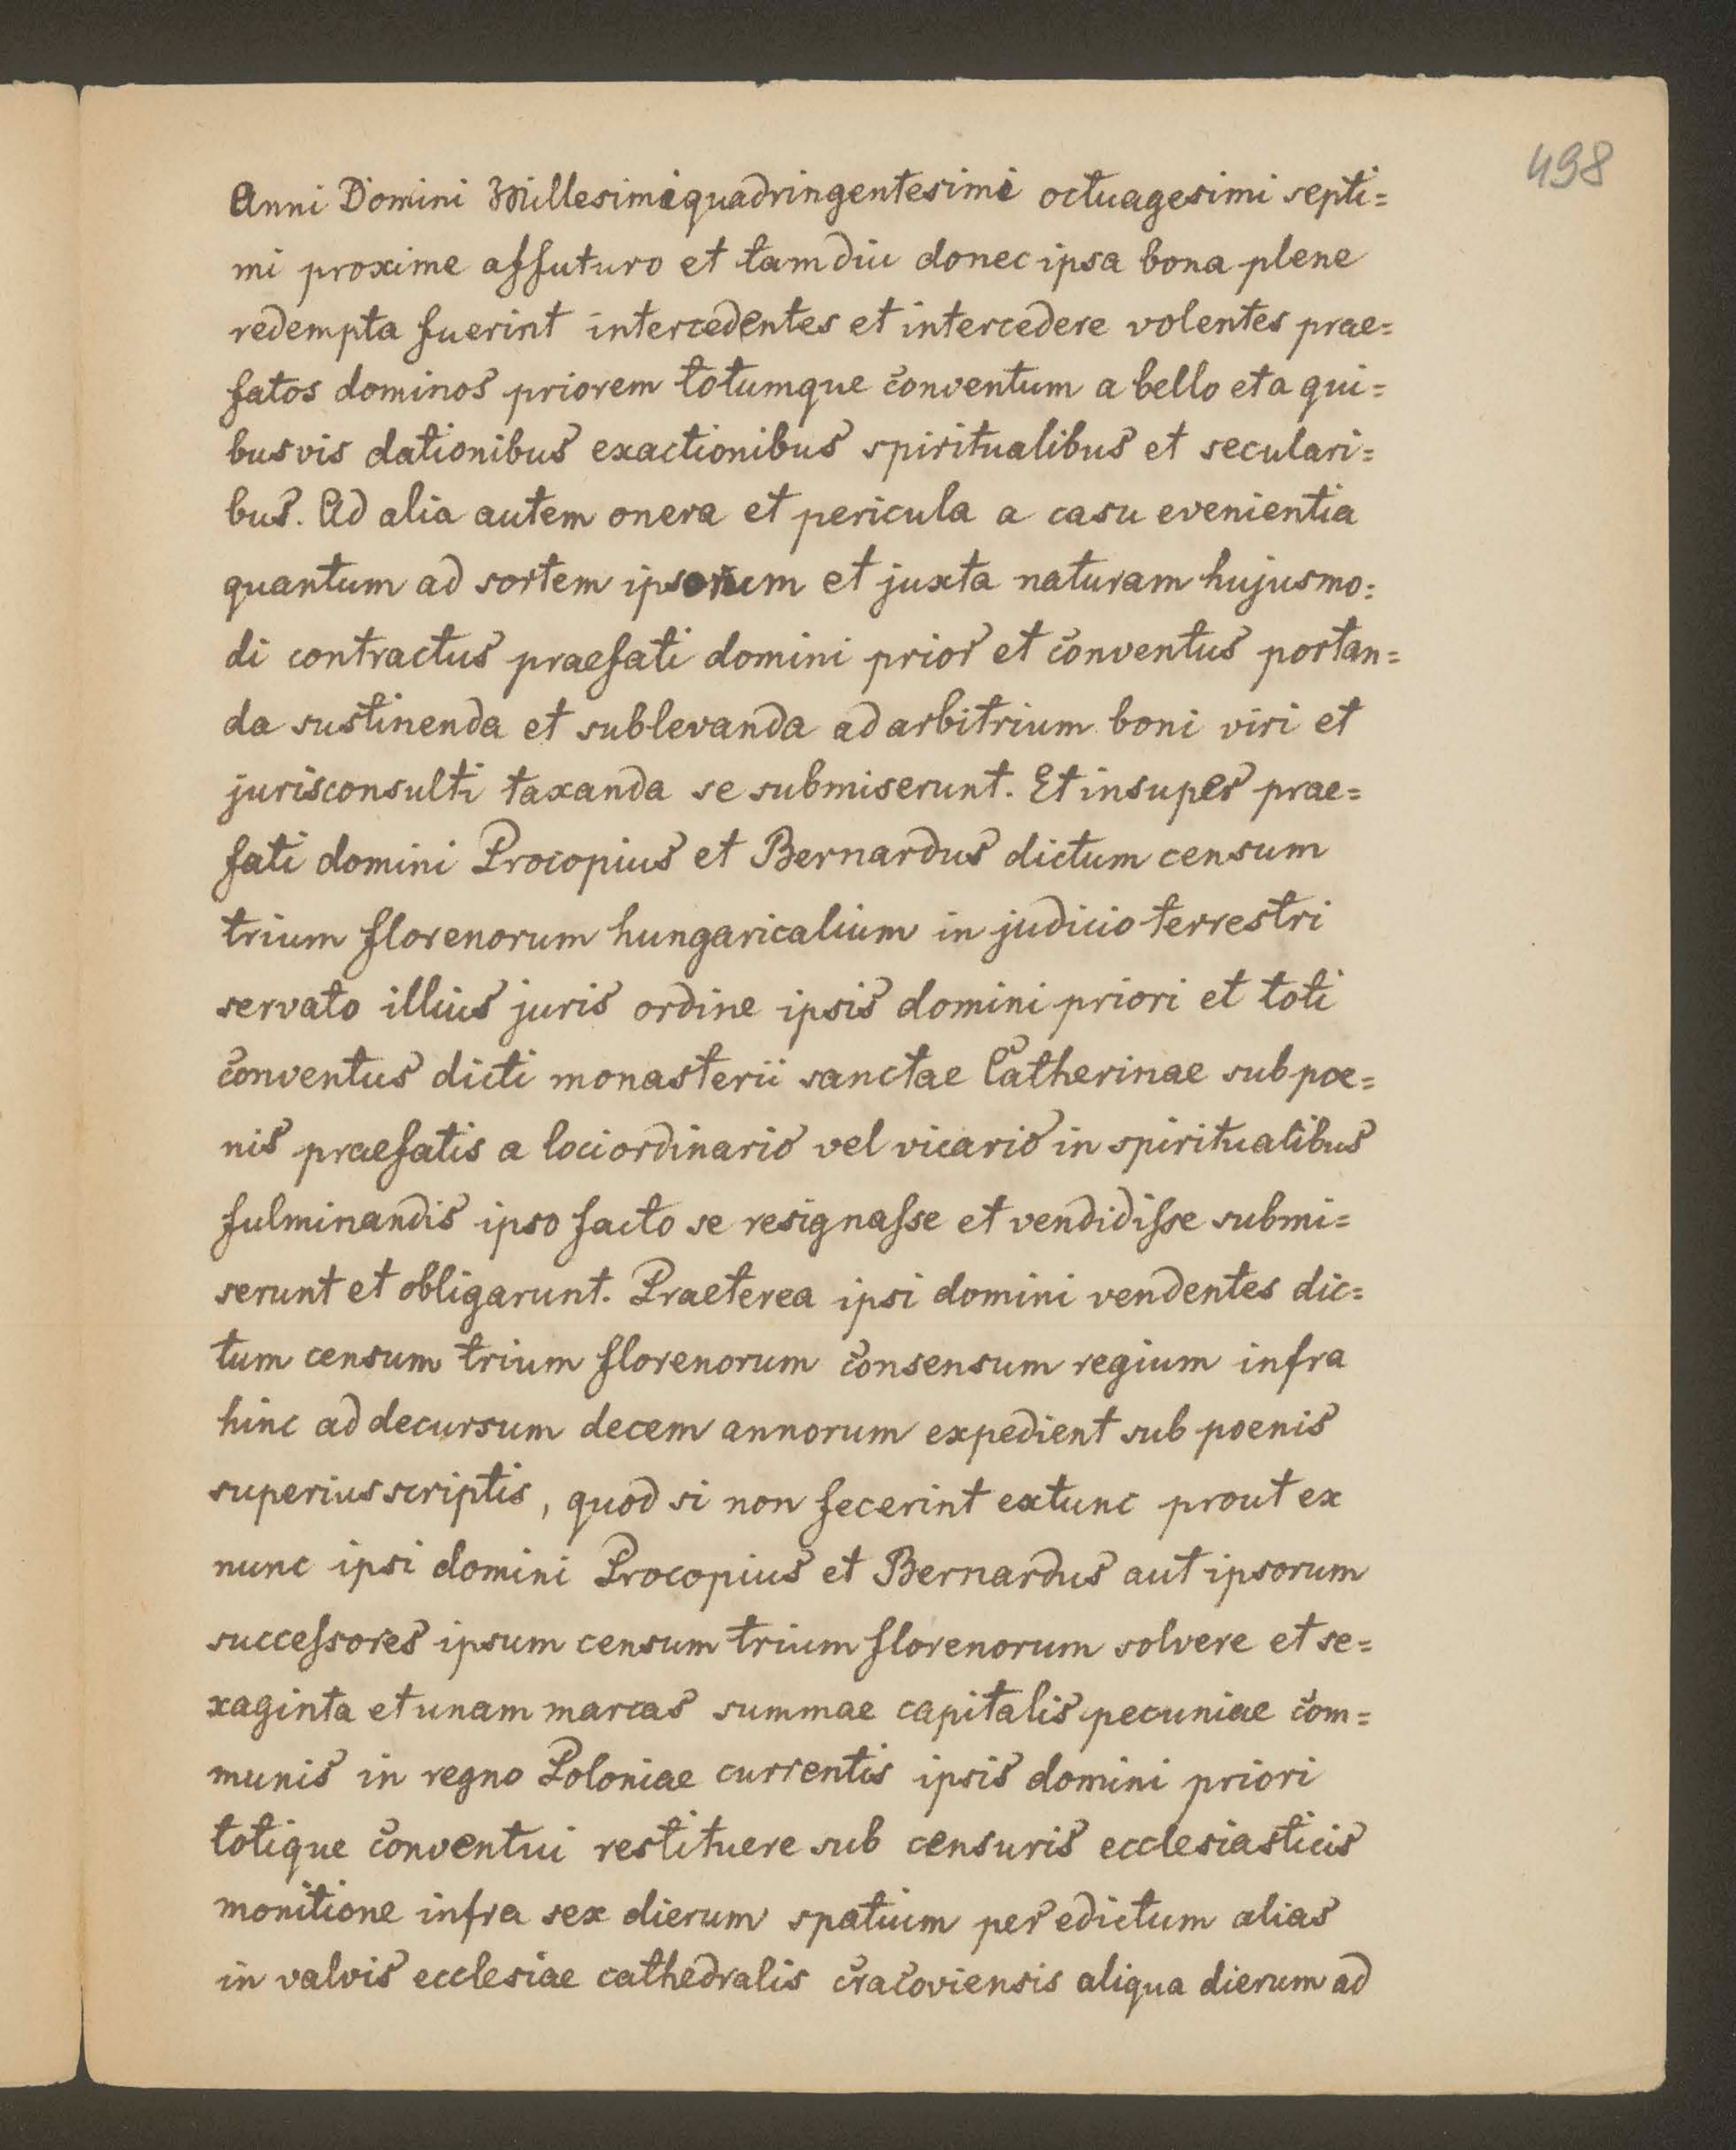 498
Anni Domini Millesimi quadringentesimi octuagesimi septi=
mi proxime affuturo et tamdiu donec ipsa bona plene
redempta fuerint intercedentes et intercedere volentes prae=
fatos dominos priorem totumque conventum a bello et a qui=
busvis dationibus exactionibus spiritualibus et seculari=
bus. Ad alia autem onera et pericula a casu evenientia
quantum ad sortem ipsorum et juxta naturam hujusmo=
di contractus praefati domini prior et conventus portan=
da sustinenda et sublevanda ad arbitrium boni viri et
jurisconsulti taxanda se submiserunt. Et insuper prae=
fati domini Procopius et Bernardus dictum censum
trium florenorum hungaricalium in judicio terrestri
servato illius juris ordine ipsis domini priori et toti
conventus dicti monasterii sanctae Catherinae sub poe=
nis praefatis a loci ordinario vel vicario in spiritualibus
fulminandis ipso facto se resignasse et vendidisse submi=
serunt et obligarunt. Praeterea ipsi domini vendentes dic=
tum censum trium florenorum consensum regium infra
hinc ad decursum decem annorum expedient sub poenis
superius scriptis, quod si non fecerint extunc prout ex
nunc ipsi domini Procopius et Bernardus aut ipsorum
successores ipsum censum trium florenorum solvere et se=
xaginta et unam marcas summae capitalis pecuniae com=
munis in regno Poloniae currentis ipsis domini priori
totique conventui restituere sub censuris ecclesiasticis
monitione infra sex dierum spatium per edictum alias
in valvis ecclesiae cathedralis cracoviensis aliqua dierum ad